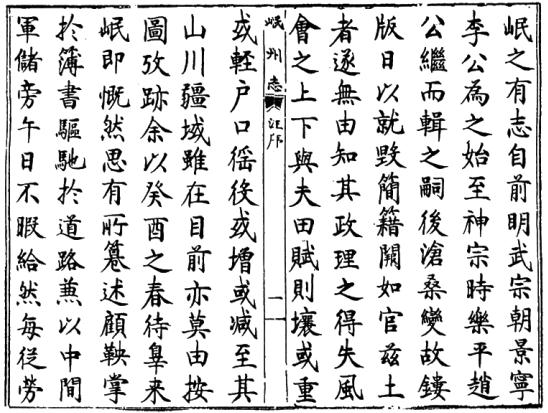 岷之有志自前明武宗朝景寧
李公為之始至神宗時樂平趙
公繼而輯之嗣後滄桑變故鏤
版日以就毀簡籍闕如官茲土
者遂無由知其政理之得失風
會之上下與夫田賦則壤或重
岷州志
汪序
或輕户口徭役或增或减至其
山川疆域雖在目前亦莫由按
圖攷跡余以癸酉之春待辠来
岷即慨然思有所篹述顧鞅掌
扵簿書驅馳扵道路兼以中間
軍儲旁午日不暇給然每従旁